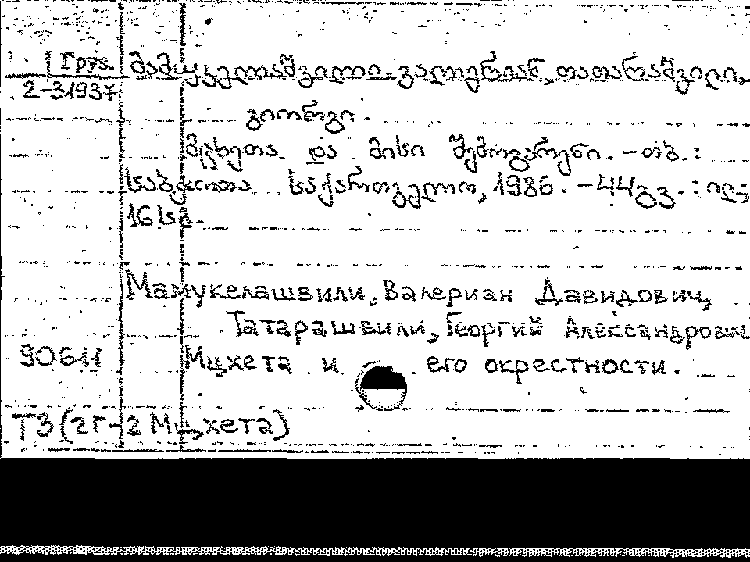 Груз. მამუკელაშვილი ვალერიან, თათარაშვილი,
2-31937
გიორგი.
მცხეთა და მისი შემოგარენი. - თბ.:
საბჭოთა საქართველო, 1986. - 44გვ.: ილ;
16სმ.
Мамукелашвили, Валериан Давидович,
Татарашвили, Георгий Александрович
90611 Мцхета и его окрестности.
Т3(2Г-2 Мцхета)